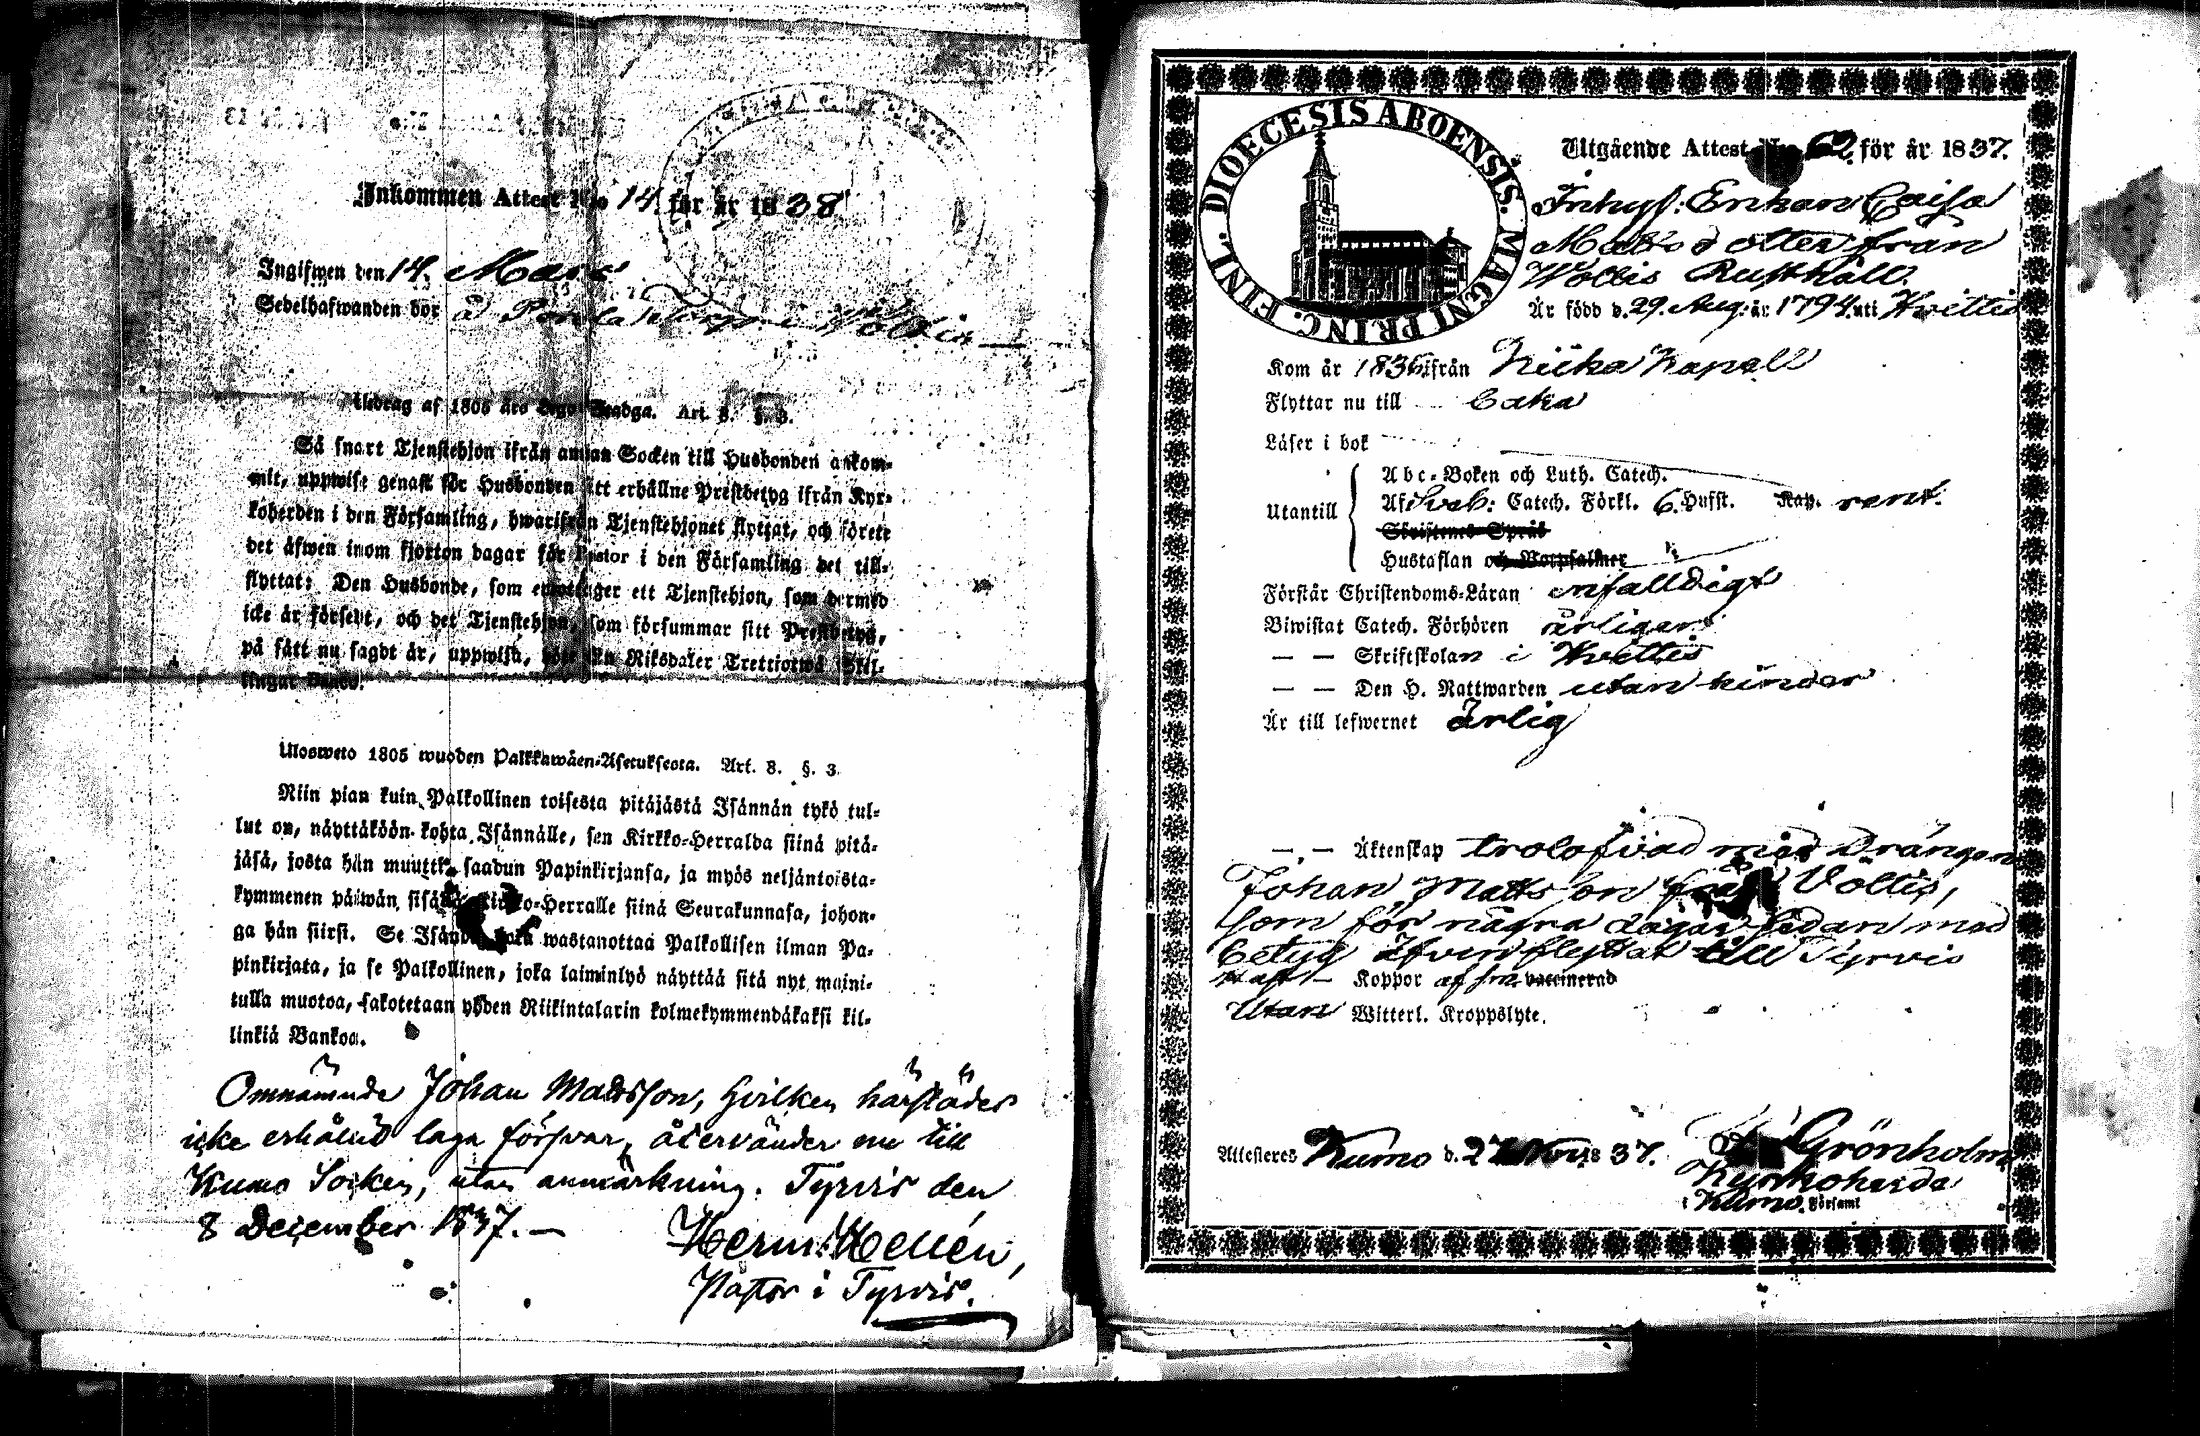 Inkommen Attest No 14. för år 1838
Ingifwen den 14. Mars
Sedelhafwanden bor å
Utdrag af 1805 års Lego-Stadga. Art. 8. §. 3.
Så snart Tjenstehjon ifrån annan Socken till Husbonden ankom-
mit, uppwise genast för Husbonden sitt erhållne Prestbetyg ifrån Kyr-
koherden i den Församling, hwarifrån Tjenstehjonet flyttat, och förete
det äfwen inom fjorton dagar för Pastor i den Församling det till-
flyttat: Den Husbonde, som emottager ett Tjenstehjon, som dermed
icke är försedt, och det Tjenstehjon, som försummar sitt Prestbetyg,
på sätt nu sagdt är, uppwisa, böte En Riksdaler Trettiotwå Skil-
lingar Banco.
Ulosweto 1805 wuoden Palkkawäen-Asetuksesta. Art. 8. §. 3.
Niin pian kuin Palkollinen toisesta pitäjästä Isännän tykö tul-
lut on, näyttäköön kohta Isännälle, sen Kirkko-Herralda siinä pitä-
jäsä, josta hän muutti, saadun Papinkirjansa, ja myös neljäntoista-
kymmenen päiwän sisällä Kirkko-Herralle siinä Seurakunnasa, johon-
ga hän siirsi. Se Isändä, joka wastanottaa Palkollisen ilman Pa-
pinkirjata, ja se Palkollinen, joka laiminlyö näyttää sitä nyt maini-
tulla muotoa, sakotetaan yhden Riikintalarin kolmekymmendäkaksi kil-
linkiä Bankoa.
Omnämnde Johan Mattsson, hvilken härstädes
icke erhållit laga försvar, återvänder nu till
Kumo Socken, utan anmärkning. Tyrvis den
8 December 1837. —
Herm: Hellén,
Pastor i Tyrvis.
DIOECESIS ABOENSIS. MAGNI PRINC. FINL.
Utgående Attest No 62. för år 1837.
Inhys: Enkan Caisa
Matts dotter från
Wollis Rusthåll.
Är född d. 29. Aug: år 1794. uti Hvittis
Kom år 1836 ifrån Kiika Kapell
Flyttar nu till
Läser i bok
Utantill
Abc-Boken och Luth. Catech.
Af Sveb: Catech. Förkl. 6. Hufst. Kap. rent.
Skriftenes Språk
Hustaflan och Botpsalmer
Förstår Christendoms-Läran enfalldigt
Biwistat Catech. Förhören årligen
— — Skriftskolan i Hvittis
— — Den H. Nattwarden utan hinder
Är till lefwernet ärlig
— — Äktenskap trolofvad med Drängen
Johan Mattsson från Völlis,
som för några dagar sedan med
betyg äfven flyttat till Tyrvis
Haft Koppor vaccinerad
Utan Witterl. Kroppslyte.
Attesteres Kumo d. 27 Nov: 1837. Grönholm
Kyrkoherde
i Kumo Församl